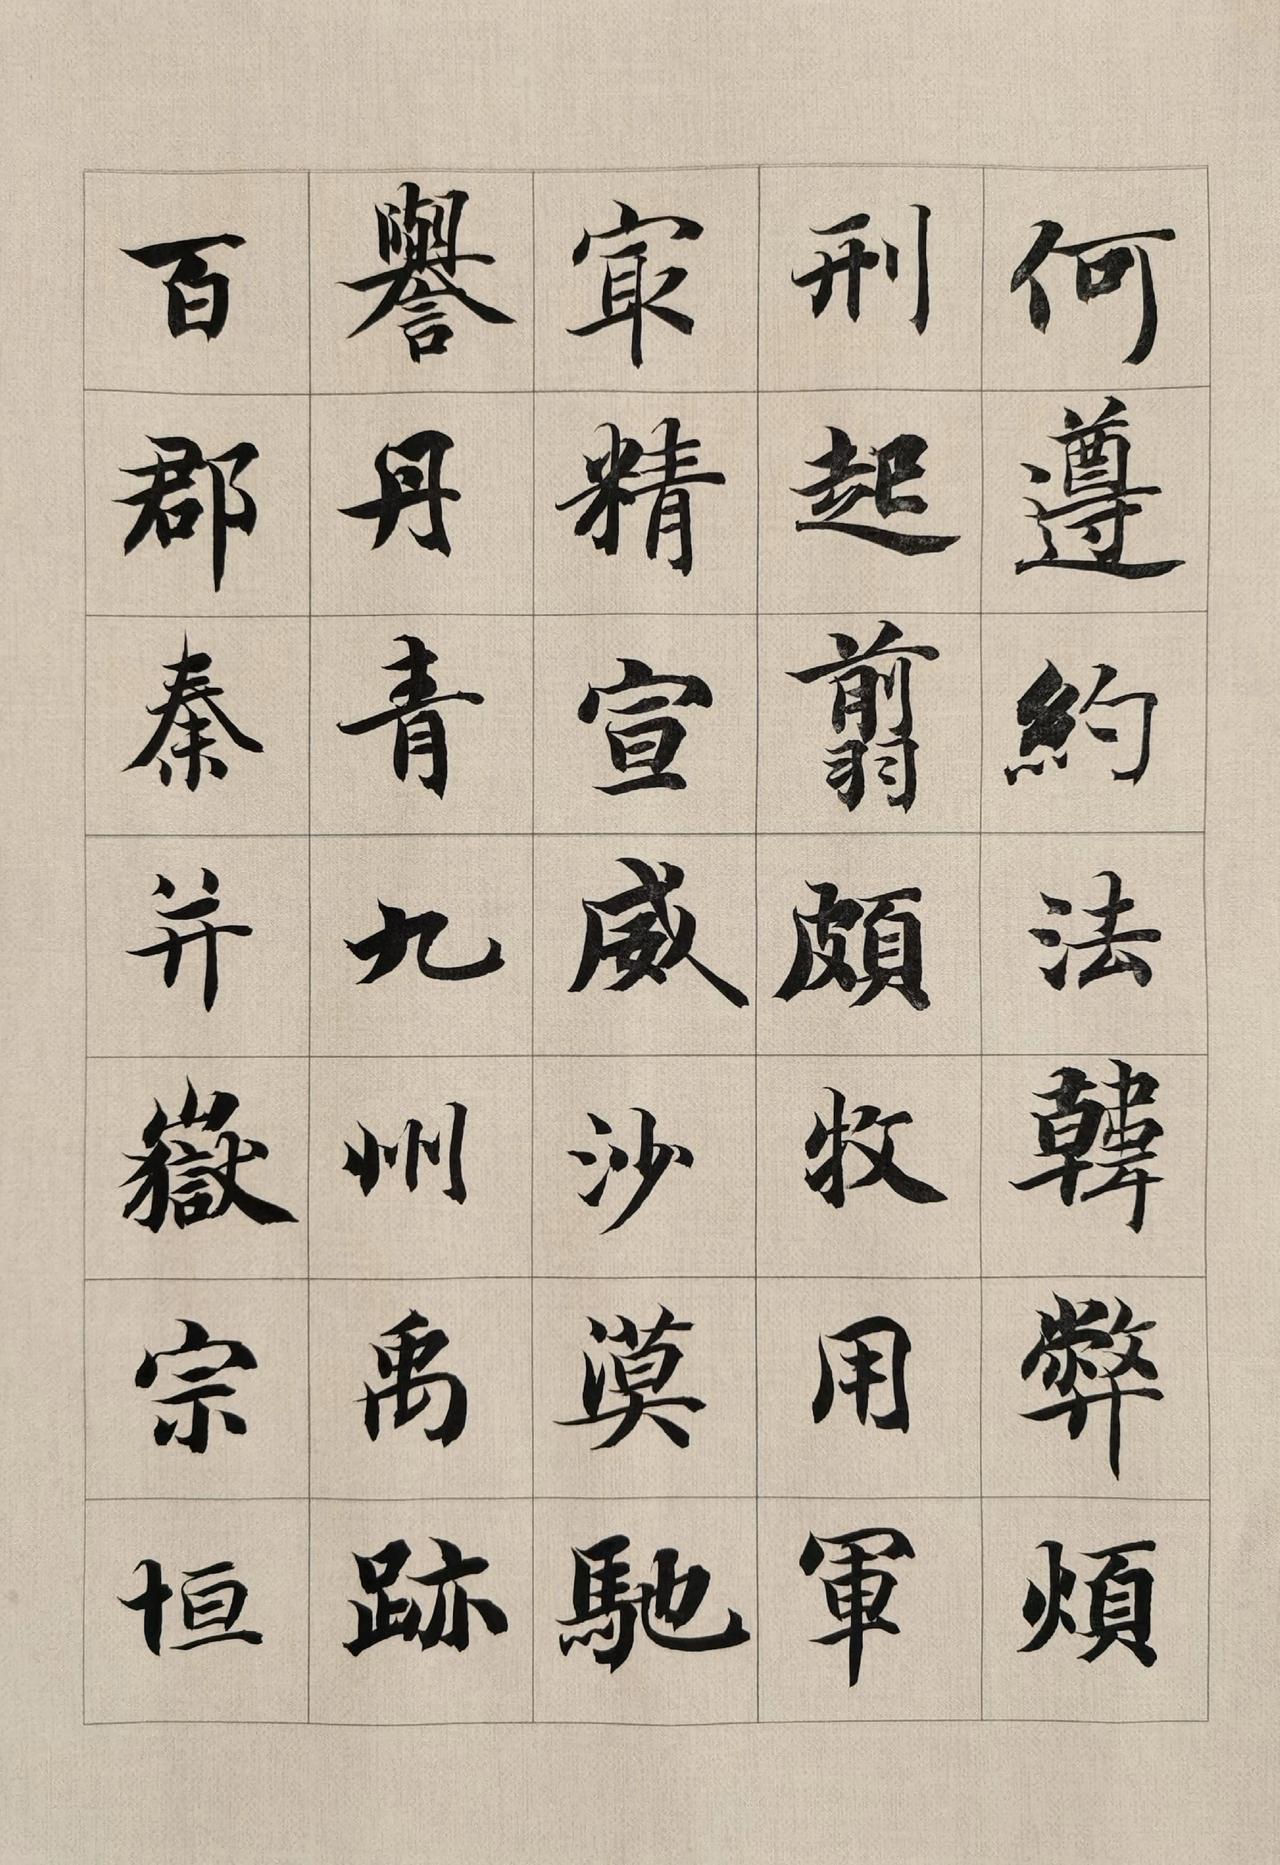 何遵約法韓弊煩
刑起翦頗牧用軍
冣精宣威沙漠馳
譽丹青九州禹跡
百郡秦并嶽宗恒